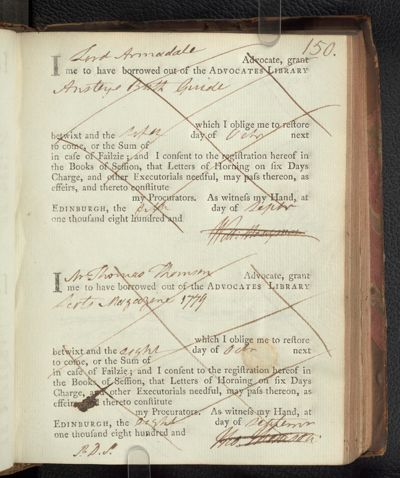 150.
I Lord Armadale Advocate, grant
me to have borrowed out of the ADVOCATES LIBRARY
Ansteys Bath Guide
which I oblige me to reſtore
betwixt and the day of Octr next
to come, or the Sum of
in caſe of Failzie; and I conſent to the regiſtration hereof in
the Books of Seſſion, that Letters of Horning on ſix Days
Charge, and other Executorials needful, may paſs thereon, as
effeirs, and thereto conſtitute
my Procurators. As witneſs my Hand, at
EDINBURGH, the day of Septr
one thouſand eight hundred and
I Mr Thomas Thomson Advocate, grant
me to have borrowed out of the ADVOCATES LIBRARY
Scots Magazine 1779
which I oblige me to reſtore
betwixt and the eight day of Octr next
to come, or the Sum of
in caſe of Failzie; and I conſent to the regiſtration hereof in
the Books of Seſſion, that Letters of Horning on ſix Days
Charge, and other Executorials needful, may paſs thereon, as
effeirs, and thereto conſtitute
my Procurators. As witneſs my Hand, at
EDINBURGH, the eight day of
one thouſand eight hundred and
Tho. Thomson